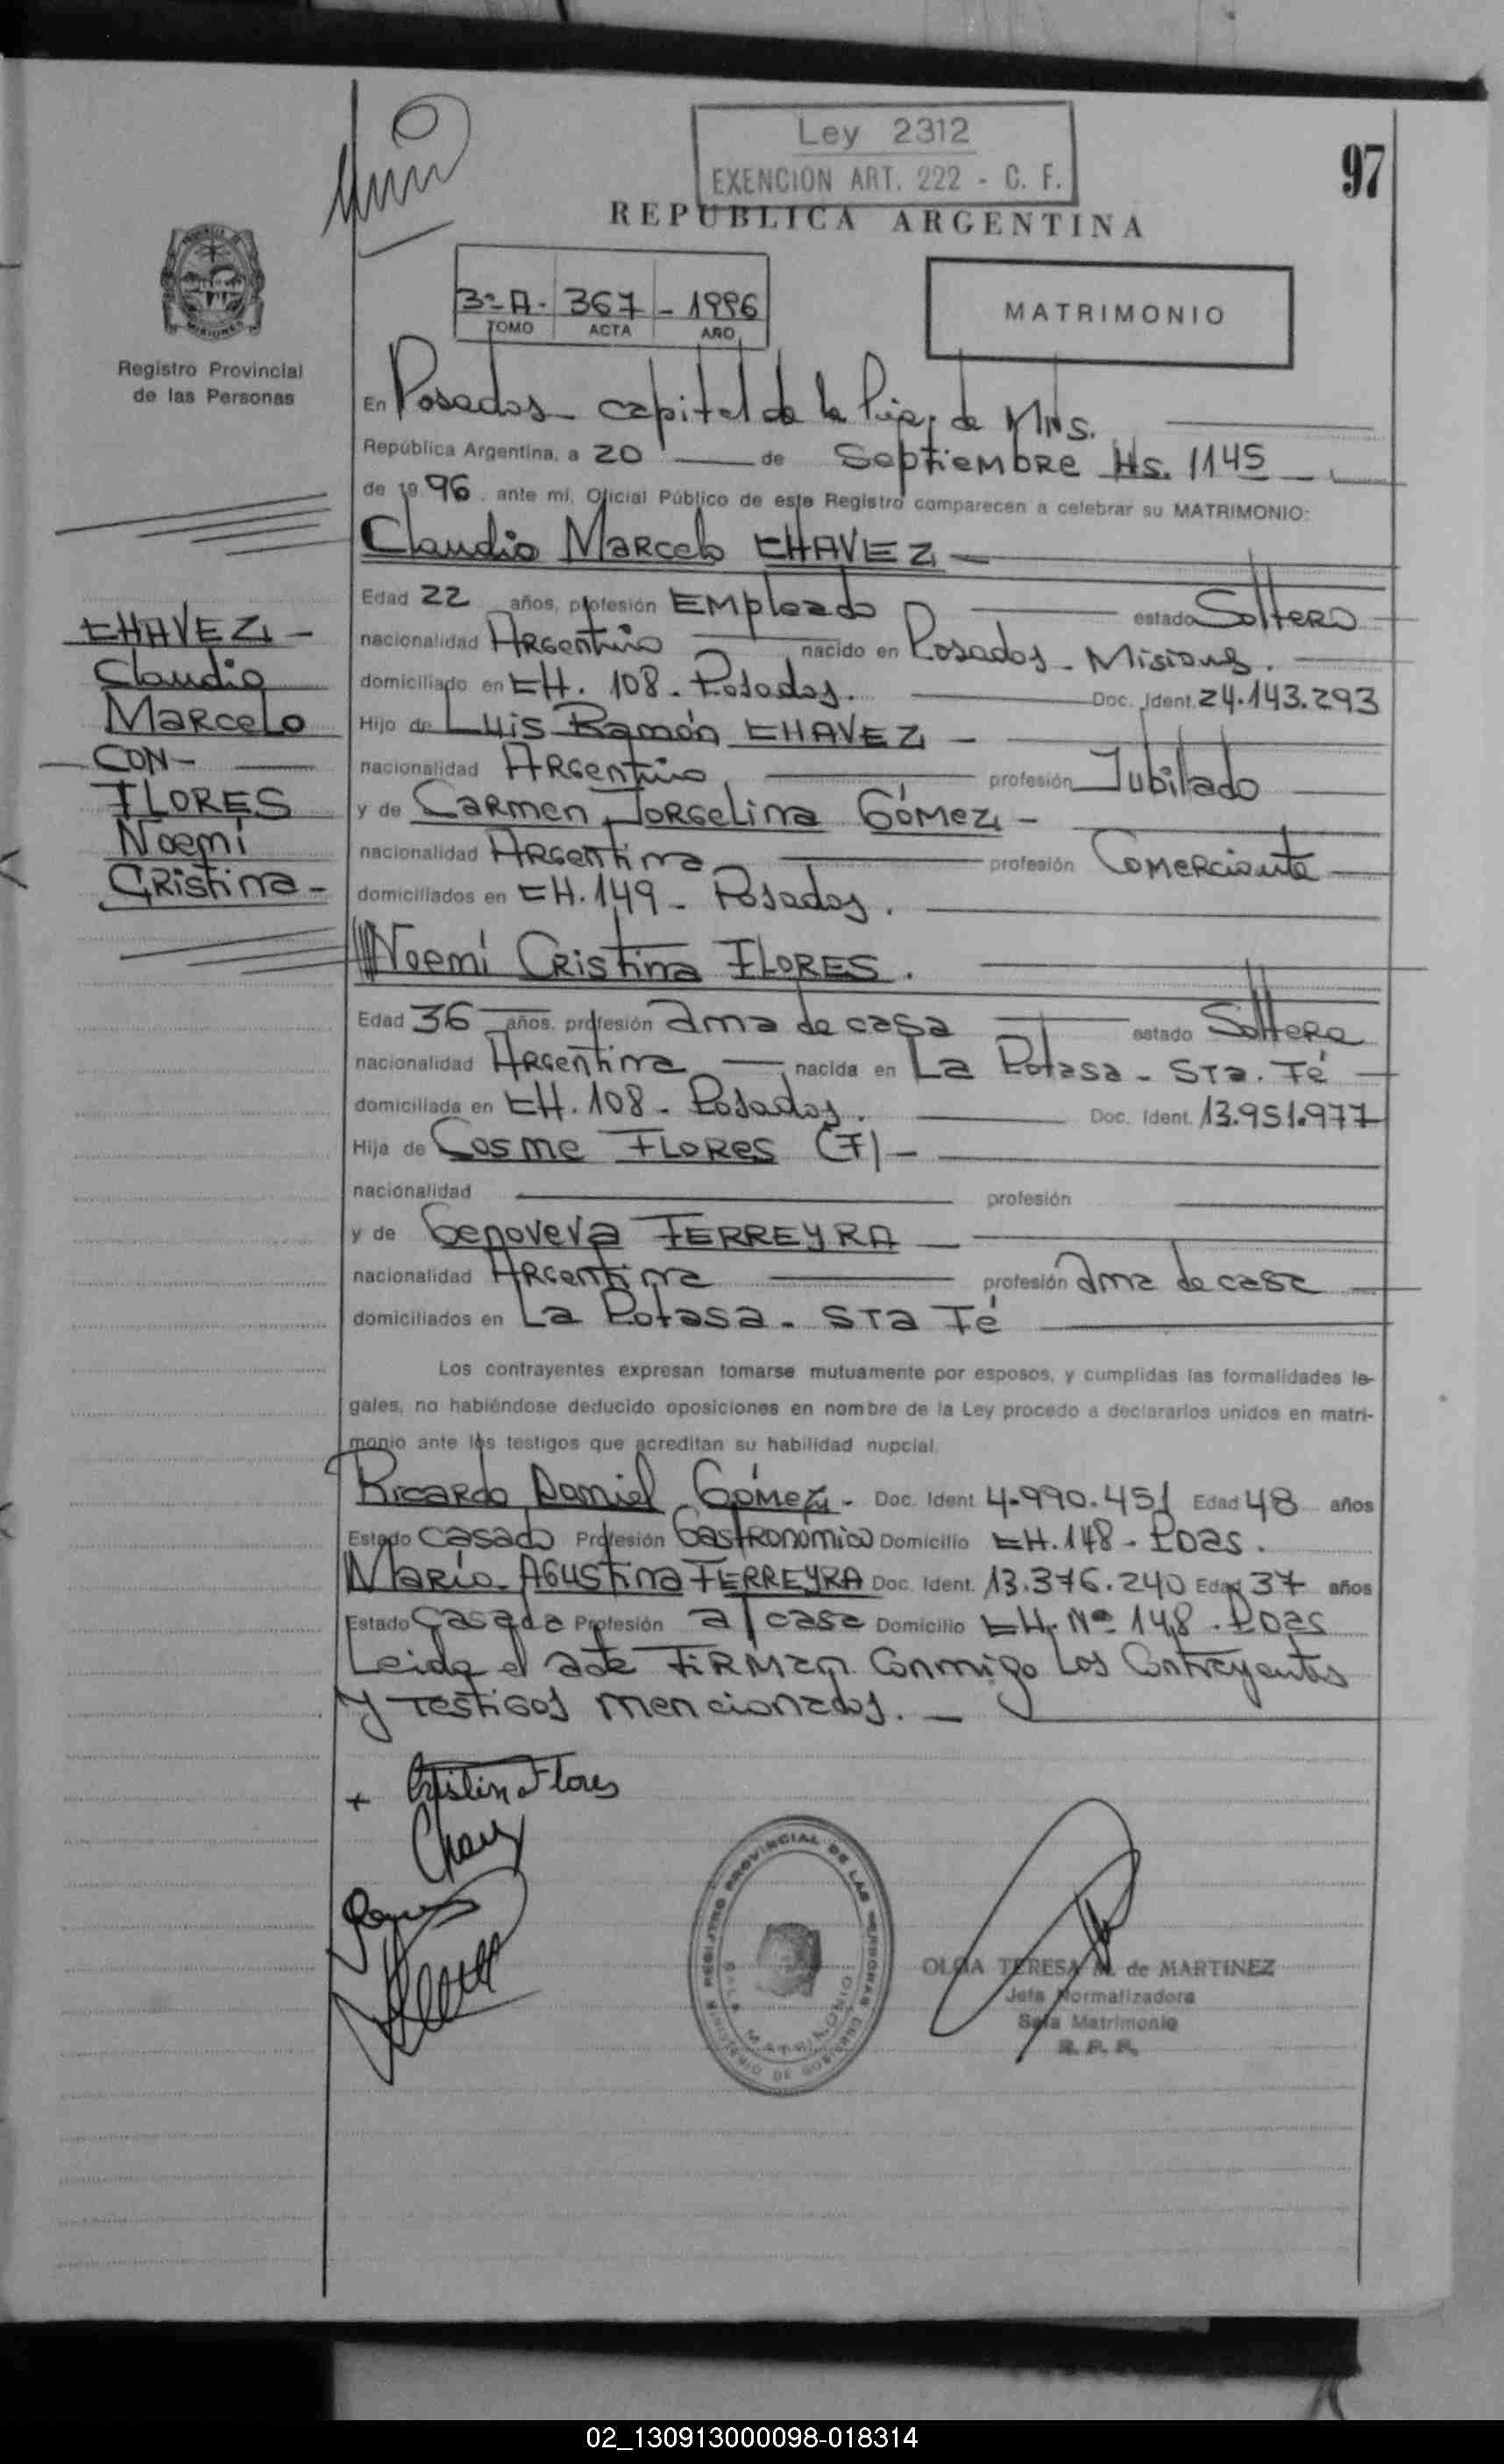 Ley 2312
EXENCION ART. 222 - C. F.
97
REPUBLICA ARGENTINA
3º A - 367 - 1996
TOMO ACTA AÑO
MATRIMONIO
MISIONES
Registro Provincial
de las Personas
En Posadas - capital de la Pcia. de Mns.
República Argentina, a 20 de Septiembre Hs. 1145
de 1996, ante mí, Oficial Público de este Registro comparecen a celebrar su MATRIMONIO:
Claudio Marcelo CHAVEZ -
Edad 22 años, profesión Empleado estado Soltero
nacionalidad Argentino nacido en Posadas - Misiones.
domiciliado en CH. 108 - Posadas. Doc. Ident. 24.143.293
Hijo de Luis Ramón CHAVEZ -
nacionalidad Argentino profesión Jubilado
y de Carmen Jorgelina GÓMEZ -
nacionalidad Argentina profesión Comerciante
domiciliados en CH. 149 - Posadas.
CHAVEZ -
Claudio
Marcelo
CON -
FLORES
Noemí
Cristina -
Noemí Cristina FLORES.
Edad 36 años, profesión ama de casa estado Soltera
nacionalidad Argentina nacida en La Potasa - Sta. Fé
domiciliada en CH. 108 - Posadas. Doc. Ident. 13.951.977
Hija de Cosme FLORES (F) -
nacionalidad profesión
y de Genoveva FERREYRA
nacionalidad Argentina profesión ama de casa
domiciliados en La Potasa - Sta Fé
Los contrayentes expresan tomarse mutuamente por esposos, y cumplidas las formalidades le-
gales, no habiéndose deducido oposiciones en nombre de la Ley procedo a declararlos unidos en matri-
monio ante los testigos que acreditan su habilidad nupcial.
Ricardo Daniel Gómez - Doc. Ident. 4.990.451 Edad 48 años
Estado Casado Profesión Gastronomico Domicilio CH. 148 - Pdas.
María Agustina FERREYRA Doc. Ident. 13.376.240 Edad 37 años
Estado Casada Profesión a/casa Domicilio CH. Nº 148 - Pdas
Leida el acta firman conmigo los Contrayentes
y testigos mencionados. -
+ Cristina Flores
Chavez
MINISTERIO DE GOBIERNO REGISTRO PROVINCIAL DE LAS PERSONAS
SALA MATRIMONIO
OLGA TERESA M. de MARTINEZ
Jefa Normalizadora
Sala Matrimonio
R. P. P.
02_130913000098-018314